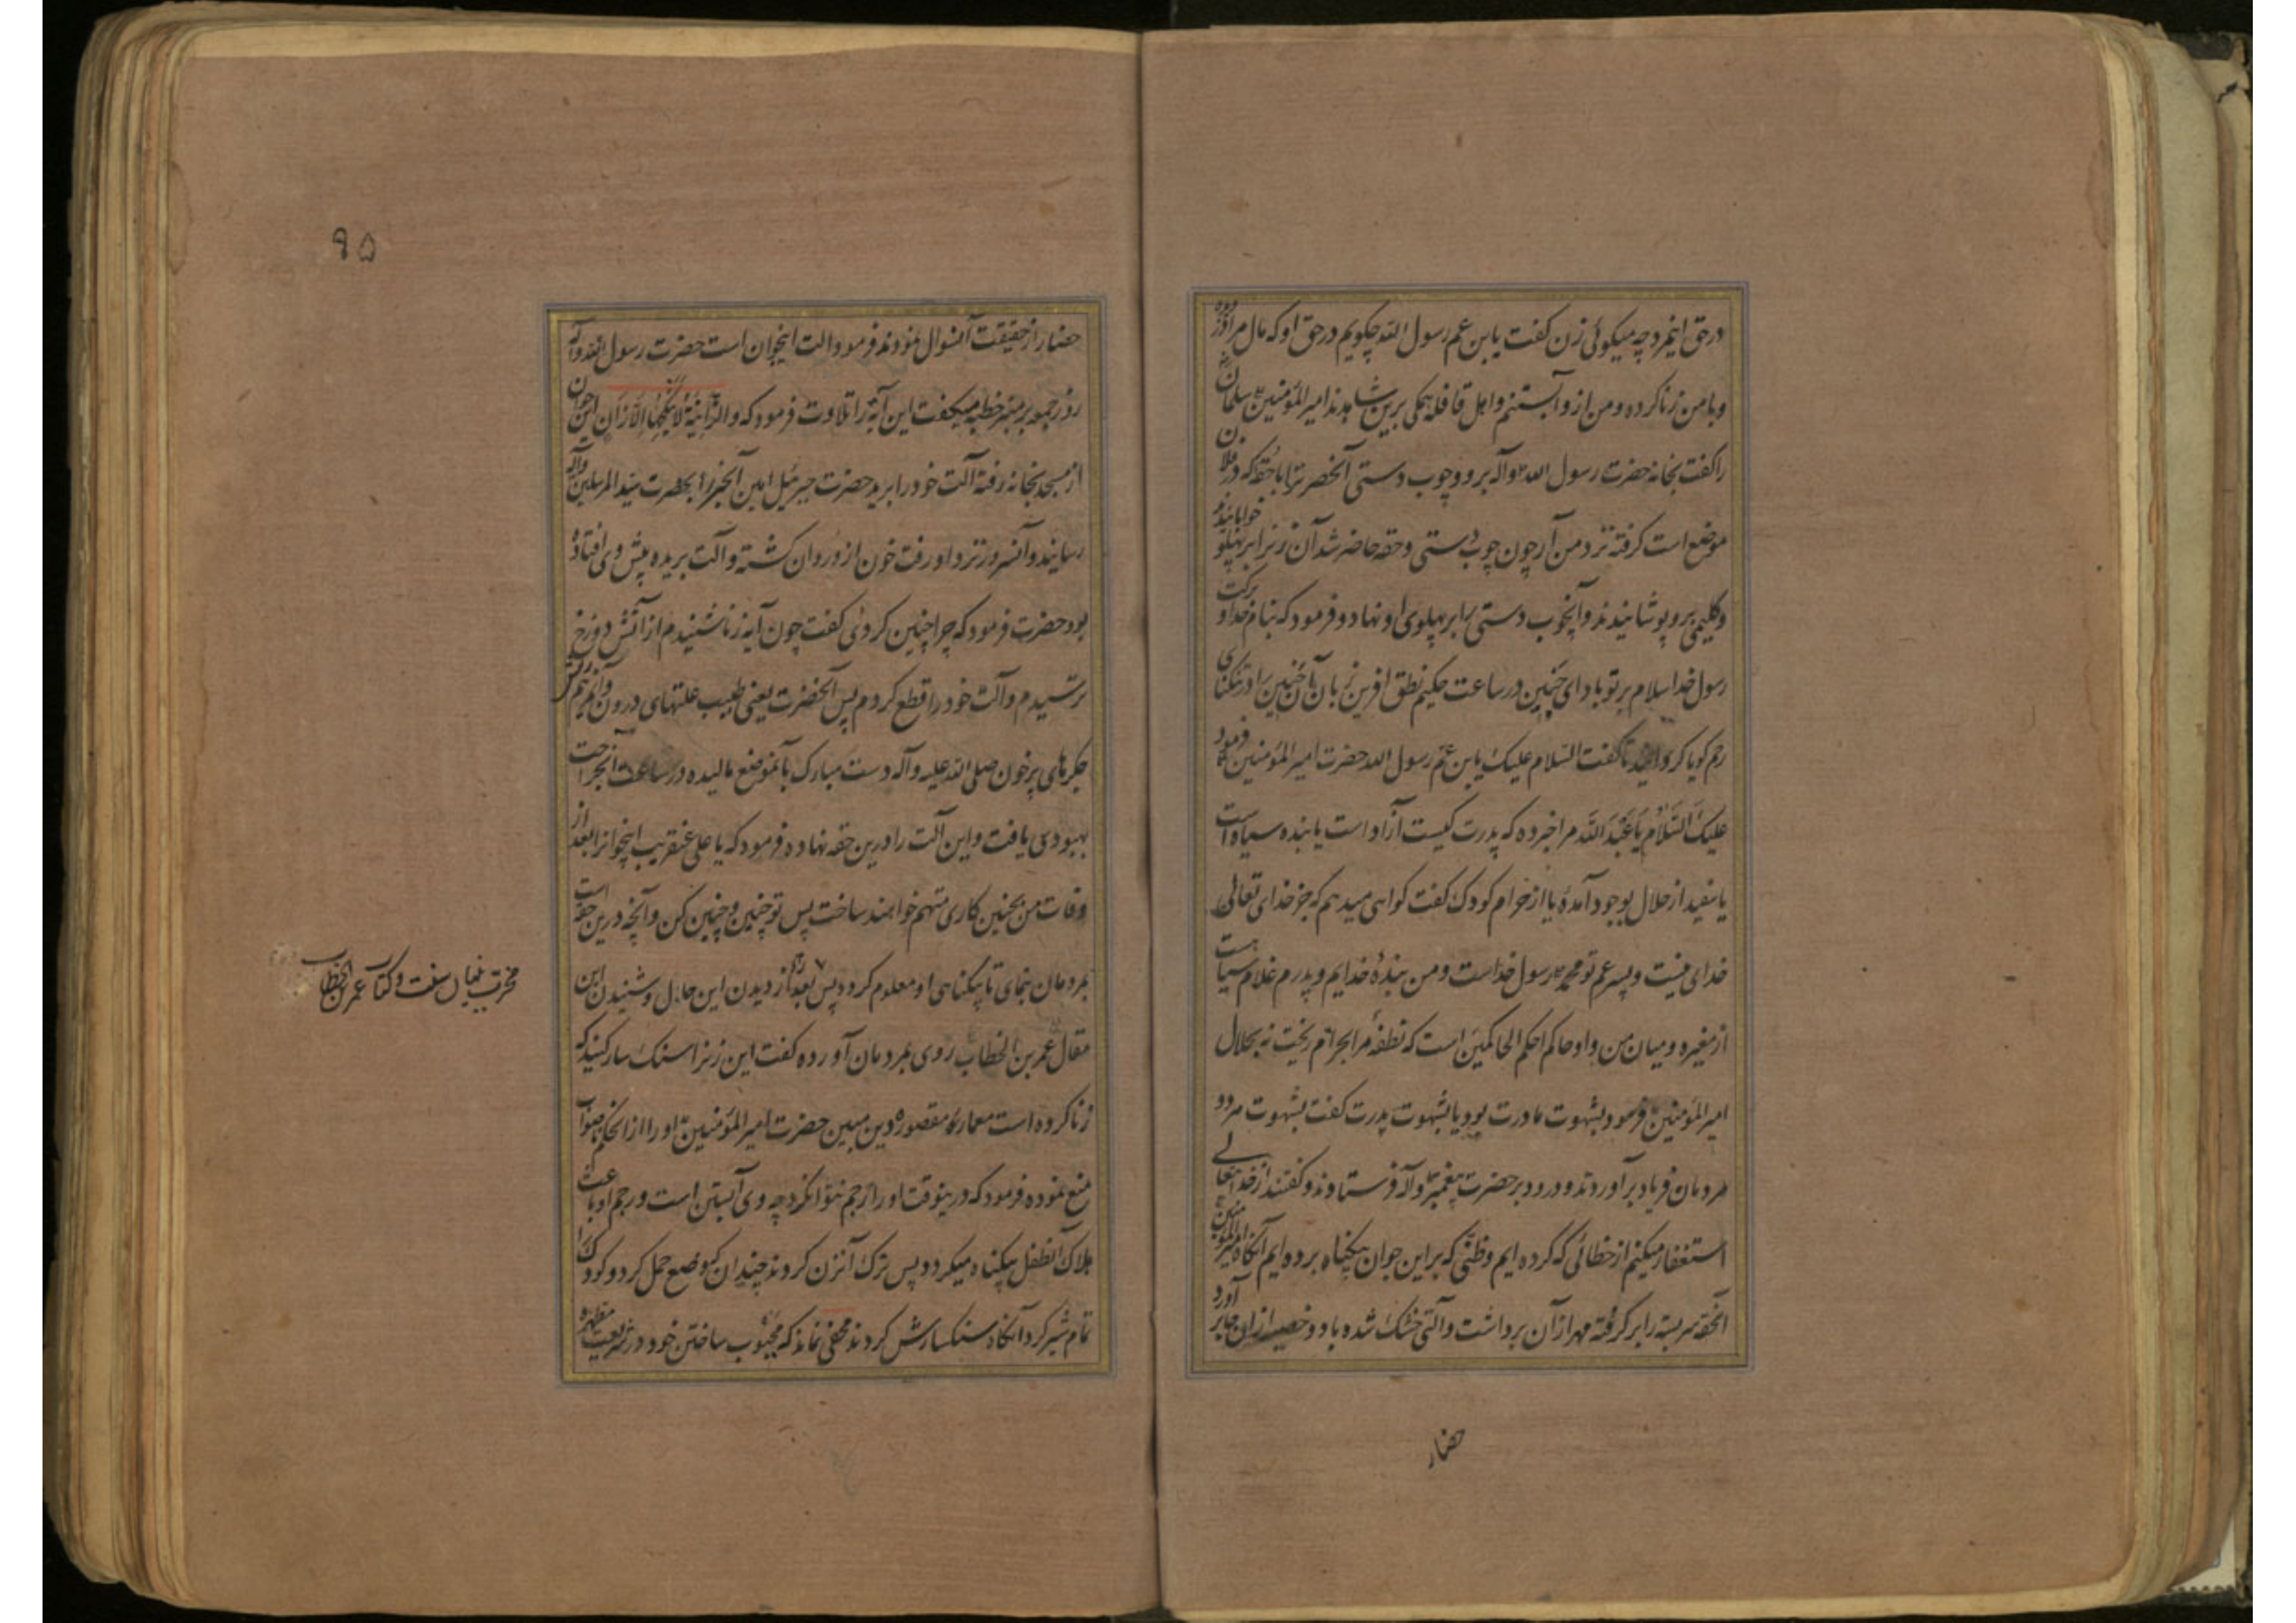 در حق اینمرد چه میکوئی زن کفت یا بن عم رسول الله چکویم در حق او که مال مرا دزدیده
و با من زنا کرده و من ازو آبستنم و اهل قافله همکی برین شاهدند امیر المؤمنین سلمان
را کفت بخانه حضرت رسول الله و آله برو و چوب دستی آنحضرت را با حقه که در فلان
موضع است کرفته نزد من آر چون چوب دستی و حقه حاضر شد آن زنرا بر پهلو خوابانیدند
و کلیمی برو پوشانیدند و آنچوب دستی را بر پهلوی او نهاد و فرمود که بنام خدا و برکت
رسول خدا سلام بر تو باد ای جنین در ساعت حکیم نطق آفرین زبان آن جنین را در تنکنای
رحم کویا کردانید تا کفت السلام علیک یا بن عم رسول الله حضرت امیر المؤمنین فرمود
علیک السلام یا عبد الله مرا خبر ده که پدرت کیست آزاد است یا بنده سیاه است
یا سفید از حلال بوجود آمدهٔ یا از حرام کودک کفت کواهی میدهم که جز خدای تعالی
خدای نیست و پسر عم تو محمد رسول خداست و من بندهٔ خدایم و پدرم غلام سیاهست
از مغیره و میان من و او حاکم احکم الحاکمین است که نطفهٔ مرا بحرام ریخت نه بحلال
امیر المؤمنین فرمود بشهوت مادرت بود یا بشهوت پدرت کفت بشهوت هر دو
مردمان فریاد برآوردند و درود بر حضرت پیغمبر و آله فرستادند و کفتند از خدا تعالی
استغفار میکنیم از خطائی که کرده ایم و ظنی که بر این جوان بیکناه برده ایم آنکاه امیر المؤمنین
آنحقه سربسته را بر کرفته مهر از آن برداشت و آلتی خشک شده با دو خصیه از آن بدر آورد
حضار
۹۵
حضار از حقیقت آن سوال نمودند فرمود آلت اینجوان است حضرت رسول و آله
روز جمعه بر منبر خطبه میکفت این آیه را تلاوت فرمود که والزانیة لا ینکحها الا زان این جوان
از مسجد بخانه رفته آلت خود را برید حضرت جبرئیل امین آنخبر را بحضرت سید المرسلین و آله
رسانید و آنسرور نزد او رفت خون ازو روان کشته و آلت بریده پیش وی افتاده
بود حضرت فرمود که چرا چنین کردی کفت چون آیه زنا شنیدم از آتش دوزخ
ترسیدم و آلت خود را قطع کردم پس آنحضرت یعنی طبیب علتهای درون و مرهم ریش
جکرهای پر خون صلی الله علیه و آله دست مبارک بآنموضع مالیده در ساعت آنجراحت
بهبودی یافت و این آلت را درین حقه نهاده فرمود که یا علی عنقریب اینجوانرا بعد از
وفات من بچنین کاری متهم خواهند ساخت پس تو چنین و چنین کن و آنچه درین حقه است
بمردمان بنمای تا بیکناهی او معلوم کردد پس بعد از دیدن این حال و شنیدن این
مقال عمر بن الخطاب روی بمردمان آورده کفت این زنرا سنک سار کنید که
زنا کرده است معمار مقصوره دین مبین حضرت امیر المؤمنین او را از آن حکم ناصواب
منع نموده فرمود که درینوقت او را رجم نتوان کرد چه وی آبستن است و رجم او باعث
هلاک آنطفل بیکناه میکردد پس ترک آنزن کردند چندان که وضع حمل کرد و کودک را
تمام شیر کرد آنکاه سنکسارش کردند مخفی نماند که مجبوب ساختن خود در شریعت مطهره
مخرب بنیان سنت و کتاب عمر بن الخطاب